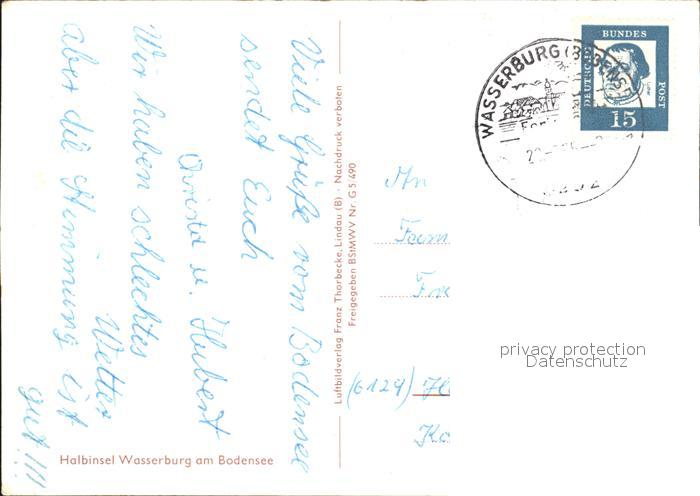 Viele Grüße vom Bodensee
sendet Euch
Christa u. Hubert
Wir haben schlechtes
Wetter
aber die Stimmung ist
gut!!!
Halbinsel Wasserburg am Bodensee
Luftbildverlag Franz Thorbecke, Lindau (B) · Nachdruck verboten
Freigegeben BStMWV Nr. G 5/490
WASSERBURG (BODENSEE)
DEUTSCHE
BUNDES
POST
Luther
15
An
Fam
(6124)
privacy protection
Datenschutz